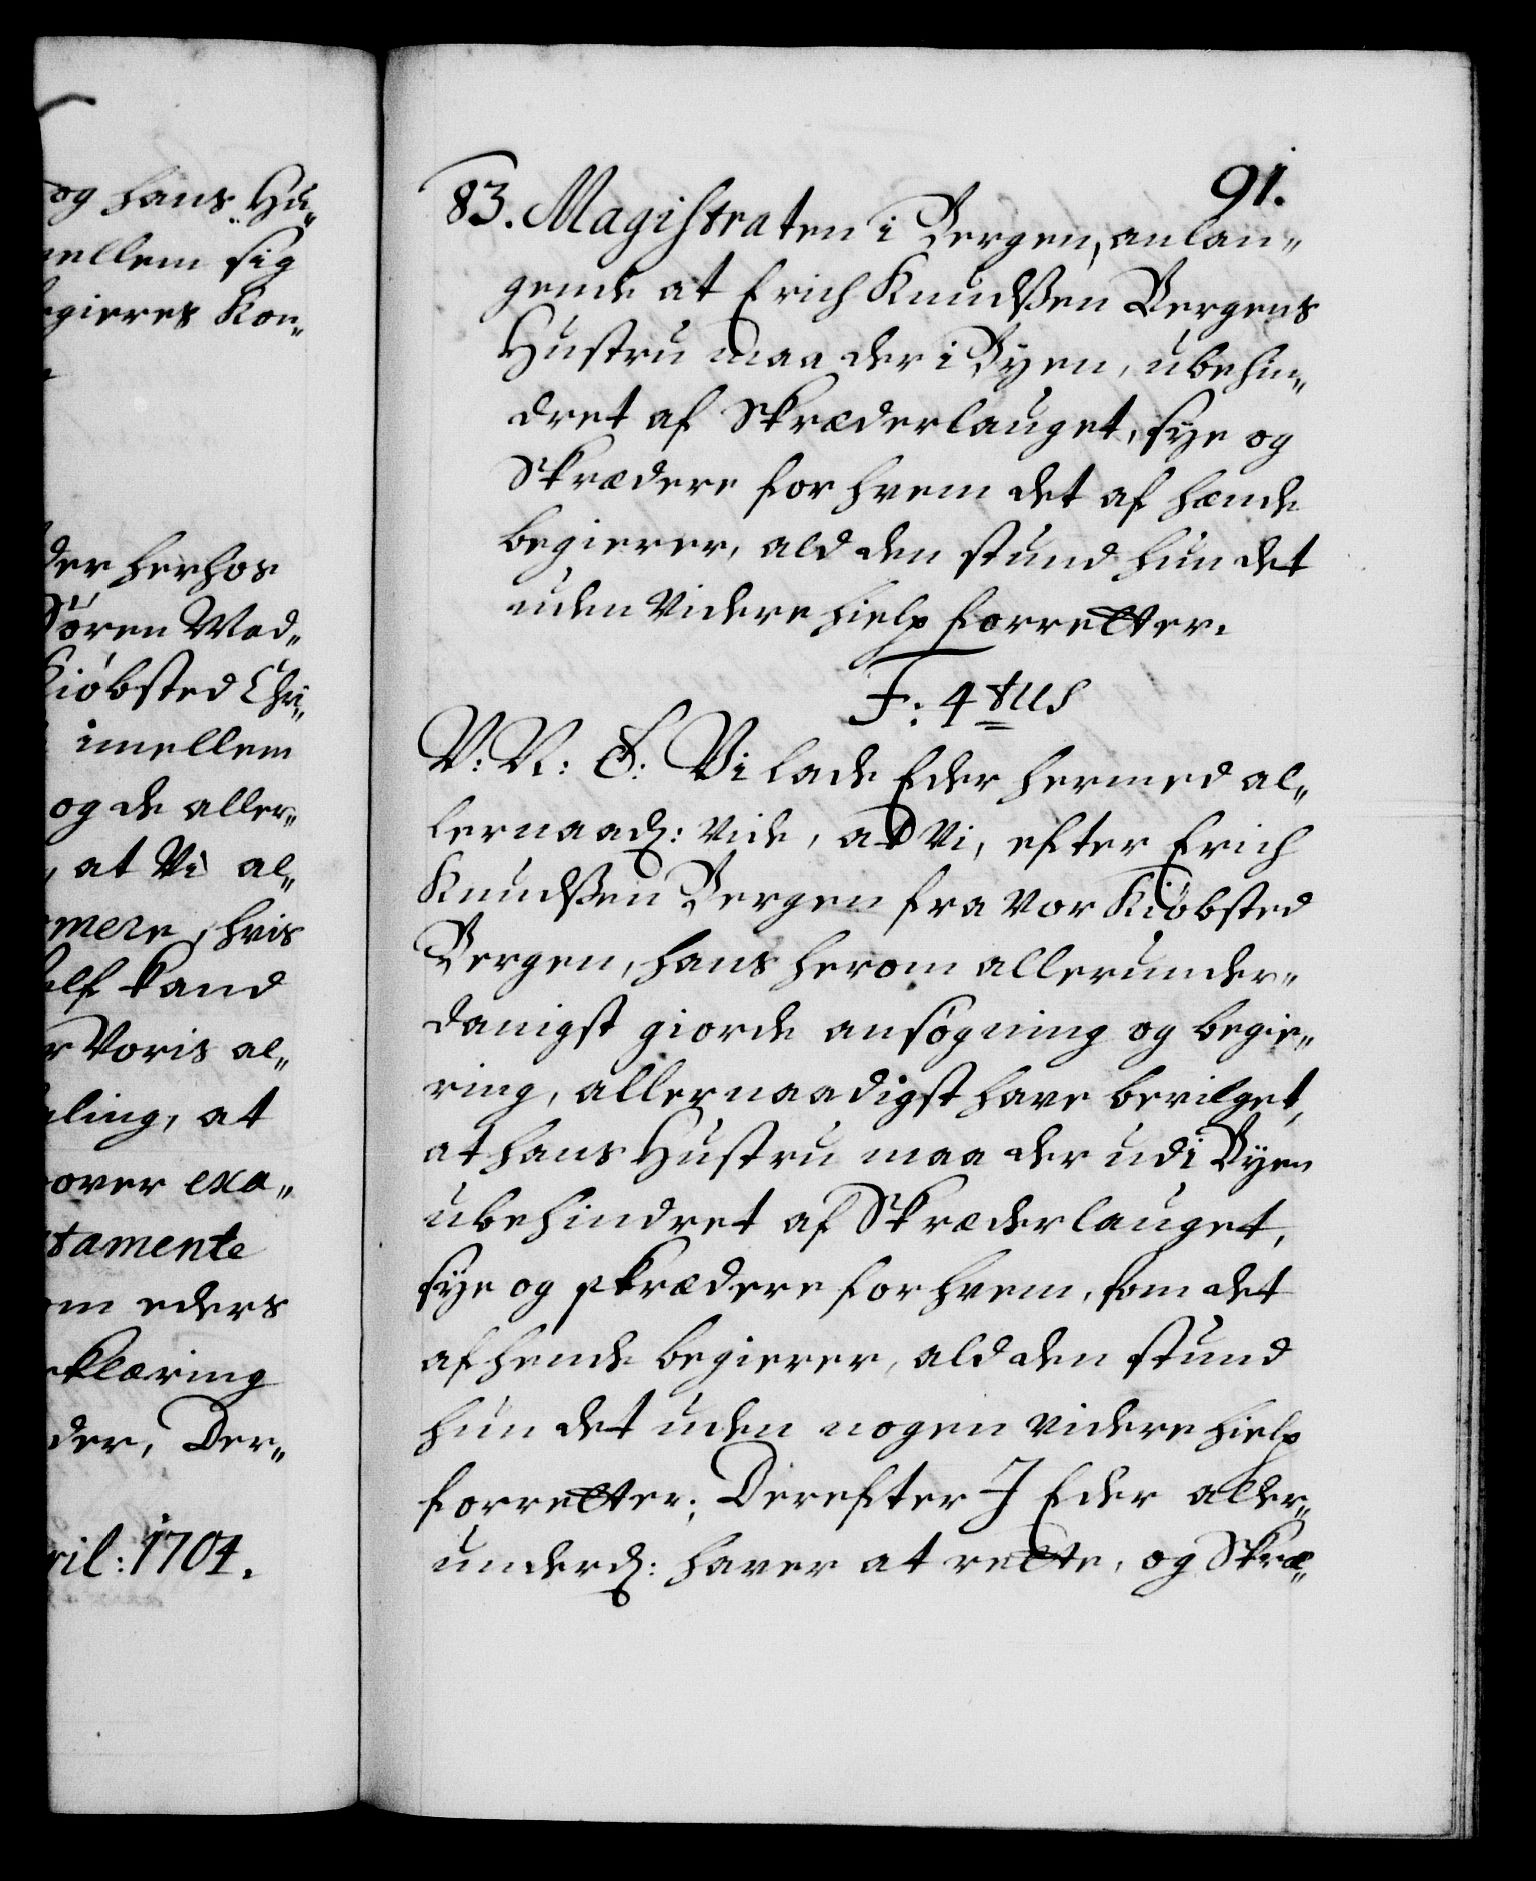 og hans Hu„
mellem sig
begieres Kon„
der herhos
Søren Mad„
Kiøbsted Chri„
imellem
og de aller„
, at Vi al„
mere, hvis
self kand
Voris al„
ling, at
over exa„
tamente
om eders
erklæring
der, Der„
ril: 1704.
91.
83. Magistraten i Bergen, anlan„
gende at Erich Knudßen Bergens
Hustru maa der i Byen, ubehin„
dret af Skræderlauget, sye og
Skrædere for hvem det af hænde
begierer, ald den stund hun det
uden videre hielp forretter.
F: 4tus
V: N: G: Vi lade Eder hermed al„
lernaad: vide, at Vi, efter Erich
Knudßen Bergen fra vor Kiøbsted
Bergen, hans herom allerunder„
danigst giorde ansøgning og begie„
ring, allernaadigst have bevilget,
at hans Hustru maa der udi Byen
ubehindret af Skræderlauget,
sye og skrædere for hvem, som det
af hende begierer, ald den stund
hun det uden nogen videre hielp
forretter; Derefter I Eder aller„
underd: haver at rette, og Skræ„